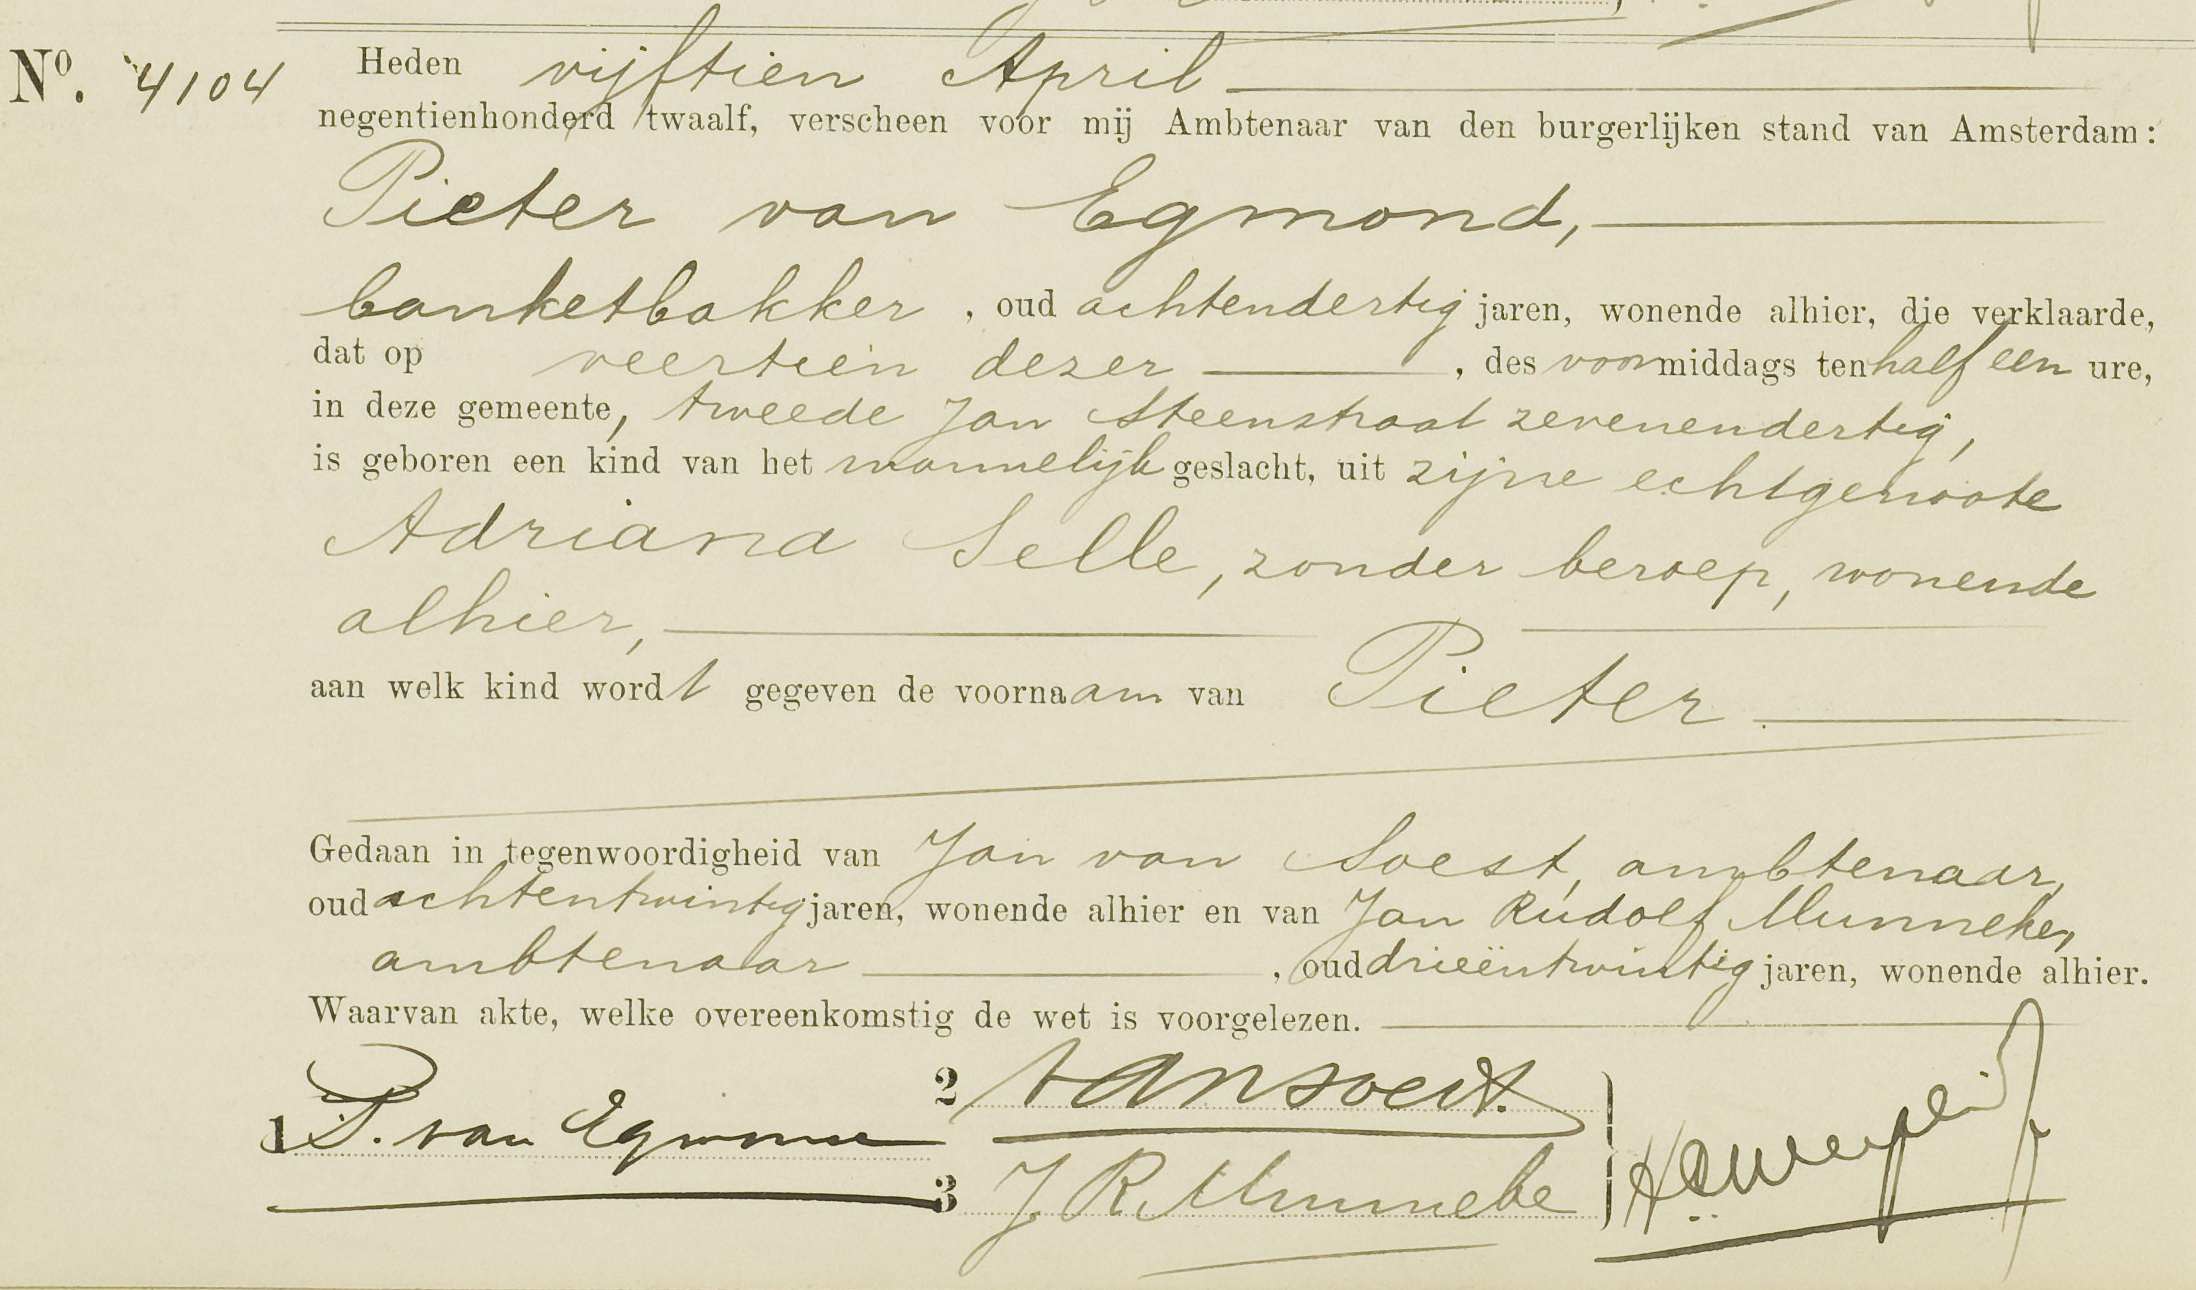 No. 4104 Heden vijftien April
negentienhonderd twaalf, verscheen voor mij Ambtenaar van den burgerlijken stand van Amsterdam:
Pieter van Egmond,
banketbakker, oud achtendertig jaren, wonende alhier, die verklaarde,
dat op veertien dezer, des voormiddags ten half een ure,
in deze gemeente, tweede Jan Steenstraat zevenendertig,
is geboren een kind van het mannelijk geslacht, uit zijne echtgenoote
Adriana Selle, zonder beroep, wonende
alhier,
aan welk kind wordt gegeven de voornaam van Pieter
Gedaan in tegenwoordigheid van Jan van Soest, ambtenaar,
oud achtentwintig jaren, wonende alhier en van Jan Rudolf Munneke,
ambtenaar, oud drieëntwintig jaren, wonende alhier.
Waarvan akte, welke overeenkomstig de wet is voorgelezen.
1 P. van Egmond
2 van Soest.
3 J R Munneke